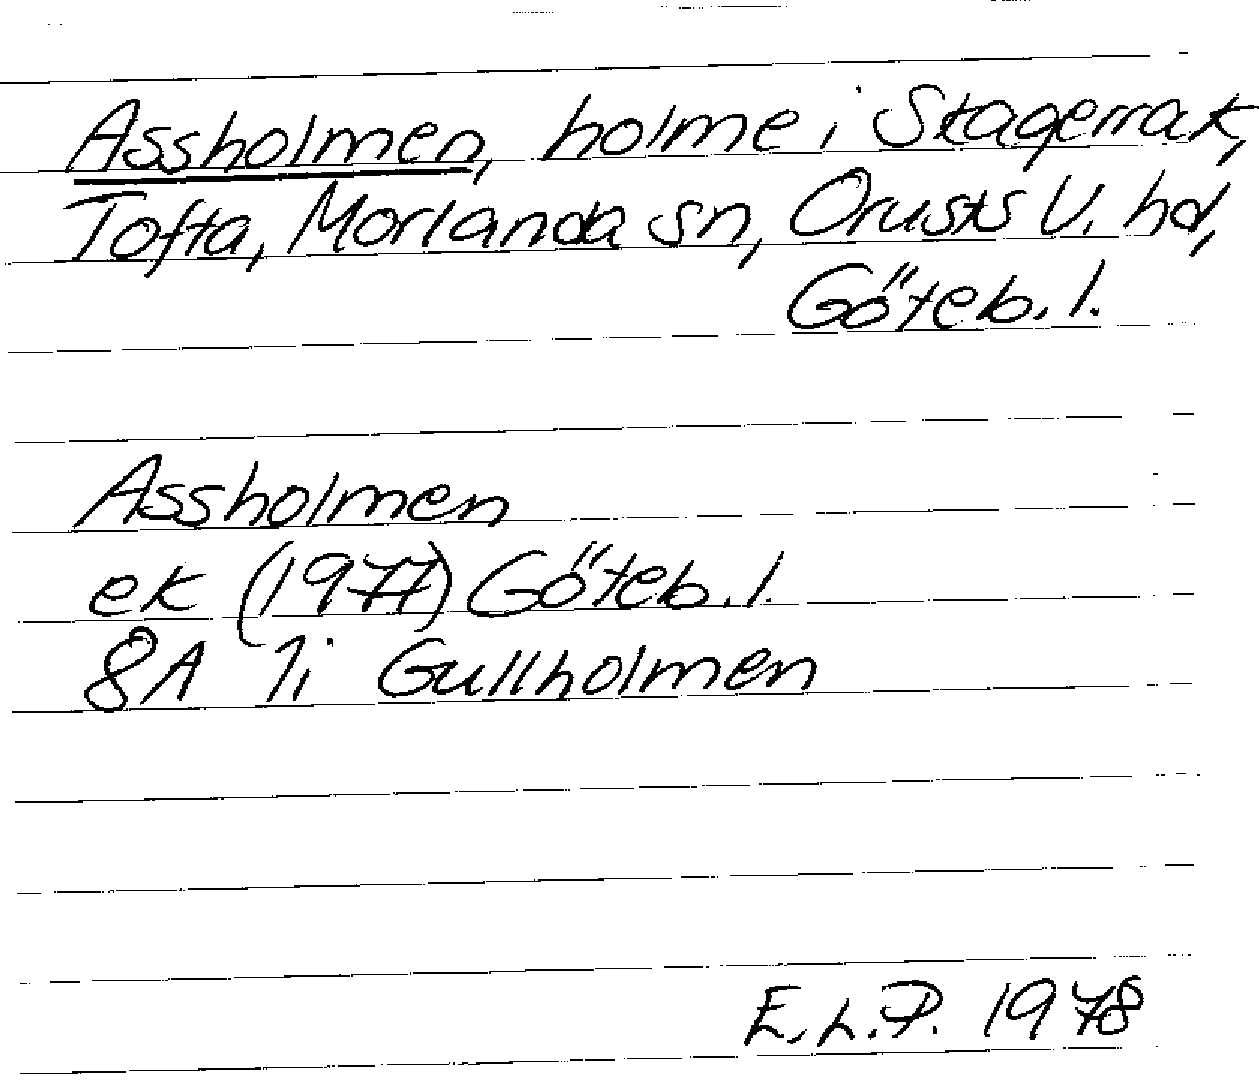 Assholmen, holme i Skagerrak,
Tofta, Morlanda sn, Orusts V. hd,
Göteb. l.
Assholmen
ek (1977) Göteb. l.
8A 7i Gullholmen
E.L.P. 1978